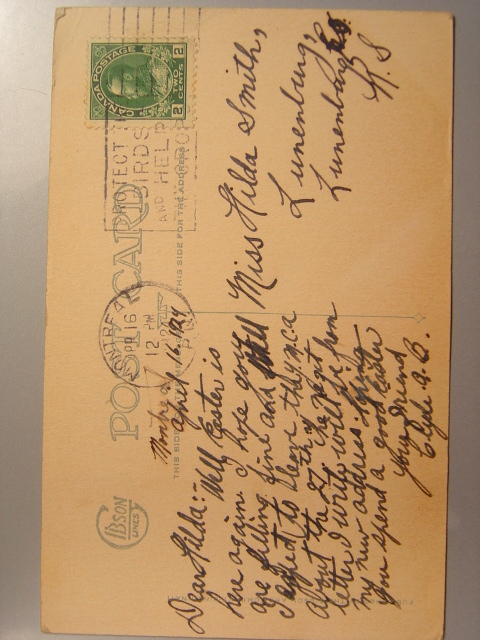 GIBSON
LINES
POST CARD
THIS SIDE
THIS SIDE FOR THE ADDRESS
CANADA POSTAGE
2 TWO CENTS 2
MONTREAL
APR 16
12 PM
1924
PROTECT
BIRDS
AND HELP
Montreal
April 16, 1924
Dear Hilda:- Well Easter is
here again I hope you
are feeling fine and Well
I expect to leave the Y.M.C.A
about the 27th, the next
letter I write will be from
my new address hoping
you spend a good Easter
your friend
Clyde A.B.
Miss Hilda Smith,
Lunenburg,
Lunenburg Co.
N.S